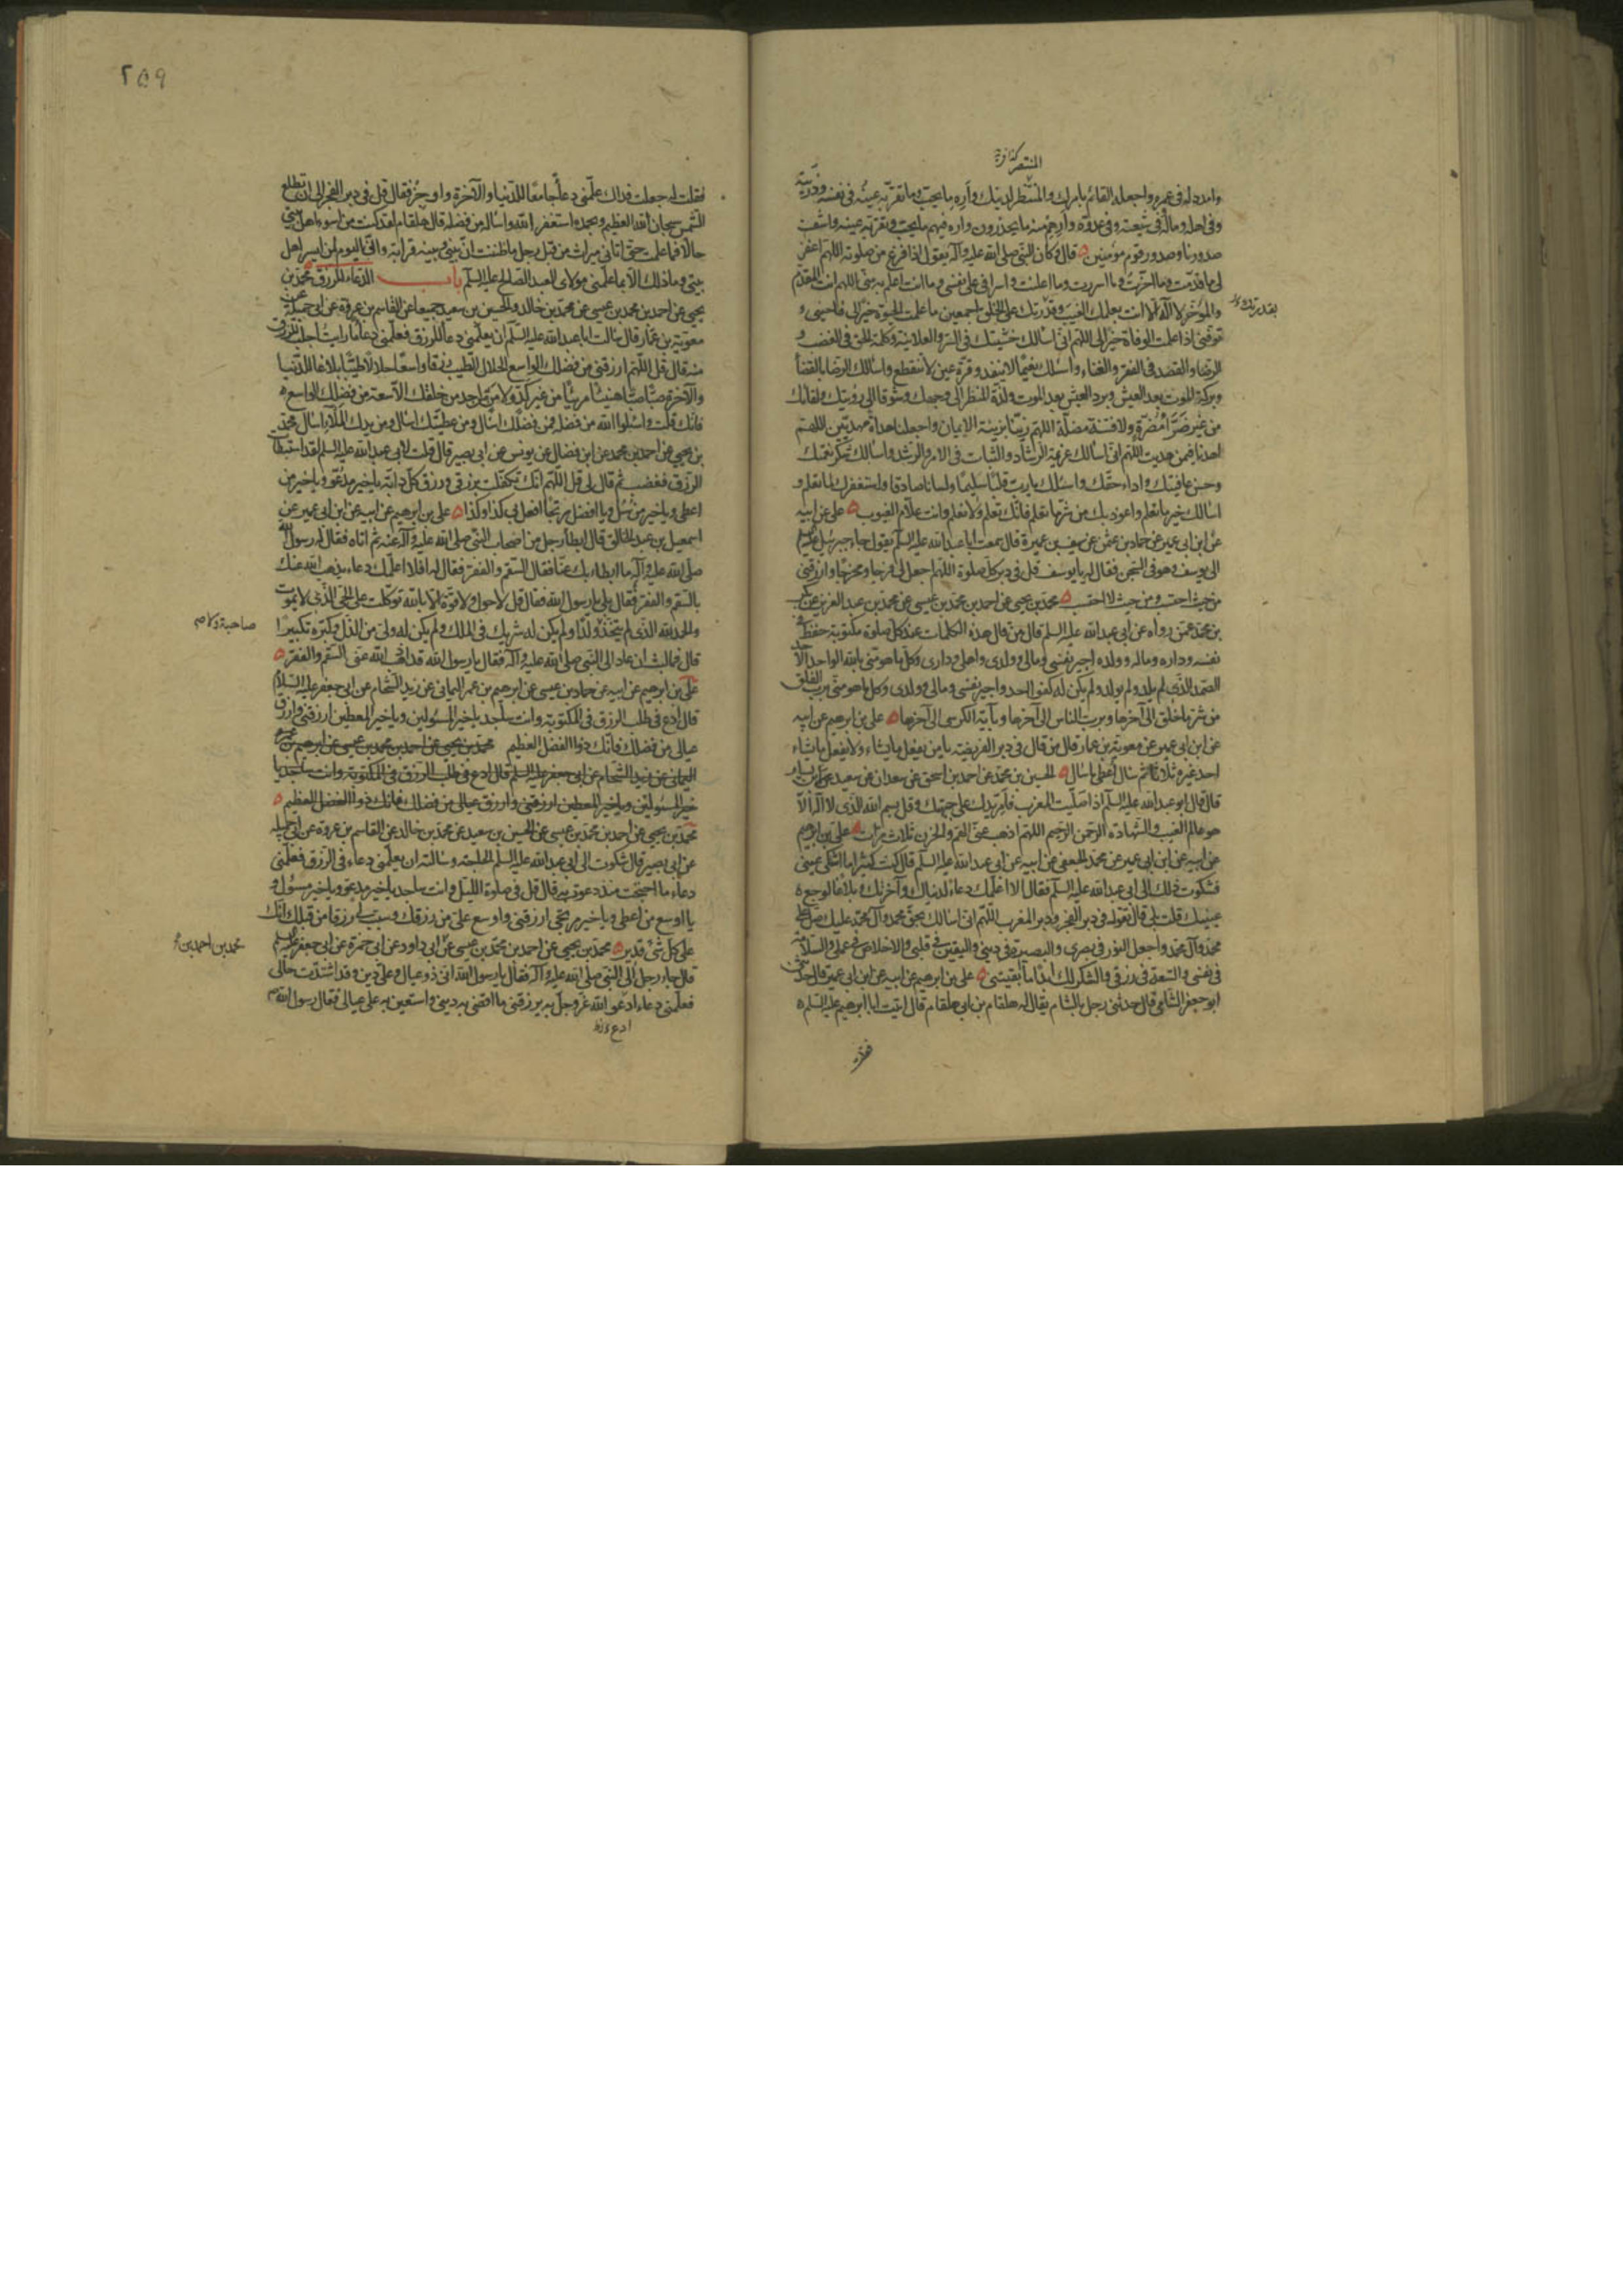 المنتصر
وامدد له في عمره واجعله القائم بامرك والمنتظر لدينك واره ما يحب وما تقر به عينه في نفسه وذريته
وفي اهله وماله وفي شيعته وفي عدوه وارهم منه ما يحذرون واره فيهم ما يحب وتقر به عينه واشف
صدورنا وصدور قوم مؤمنين قال وكان النبي صلى الله عليه وآله يقول اذا فرغ من صلوته اللهم اغفر
لي ما قدمت وما اخرت وما اسررت وما اعلنت واسرافي على نفسي وما انت اعلم به مني اللهم انت المقدم
والمؤخر لا اله الا انت بعلمك الغيب وقدرتك على الخلق اجمعين ما علمت الحيوة خيرا لي فاحيني و
توفني اذا علمت الوفاة خيرا لي اللهم اني اسالك خشيتك في السر والعلانية وكلمة الحق في الغضب و
الرضا والقصد في الفقر والغناء واسئلك نعيما لا ينفد وقرة عين لا تنقطع واسالك الرضا بالقضا
وبركة الموت بعد العيش وبرد العيش بعد الموت ولذة المنظر الى وجهك وشوقا الى رؤيتك ولقائك
من غير ضراء مضرة ولا فتنة مضلة اللهم زينا بزينة الايمان واجعلنا هداة مهديين اللهم
اهدنا فيمن هديت اللهم اني اسالك عزيمة الرشاد والثبات في الامر والرشد واسالك شكر نعمتك
وحسن عافيتك واداء حقك واسئلك يا رب قلبا سليما ولسانا صادقا واستغفرك لما تعلم و
اسالك خير ما تعلم واعوذ بك من شر ما تعلم فانك تعلم ولا نعلم وانت علام الغيوب علي عن ابيه
عن ابن ابي عمير عن حماد بن عثمن عن سيف بن عميرة قال سمعت ابا عبد الله عليه السلم يقول جاء جبرئيل
الى يوسف وهو في السجن فقال له يا يوسف قل في دبر كل صلوة اللهم اجعل لي فرجا ومخرجا وارزقني
من حيث احتسب ومن حيث لا احتسب محمد بن يحيى عن احمد بن محمد بن عيسى عن محمد بن عبد العزيز عن بكر
بن محمد عمن رواه عن ابي عبد الله عليه السلم قال من قال هذه الكلمات عند كل صلوة مكتوبة حفظ في
نفسه وداره وماله وولده اجير نفسي ومالي وولدي واهلي وداري وكل ما هو مني بالله الواحد الاحد
الصمد الذي لم يلد ولم يولد ولم يكن له كفوا احد واجير نفسي ومالي وولدي وكل ما هو مني برب الفلق
من شر ما خلق الى آخرها وبرب الناس الى آخرها وبآية الكرسي الى آخرها علي بن ابرهيم عن ابيه
عن ابن ابي عمير عن معوية بن عمار قال من قال في دبر الفريضة يا من يفعل ما يشاء ولا يفعل ما يشاء
احد غيره ثلاثا ثم سال اعطي ما سال الحسين بن محمد عن احمد بن اسحق عن سعدان عن سعيد بن يسار
قال قال ابو عبد الله عليه السلم اذا صليت المغرب فامر يدك على جبهتك وقل بسم الله الذي لا اله الا
هو عالم الغيب والشهادة الرحمن الرحيم اللهم اذهب عني الهم والحزن ثلاث مرات علي بن ابرهيم
عن ابيه عن ابن ابي عمير عن محمد الجعفي عن ابيه عن ابي عبد الله عليه السلم قال كنت كثيرا ما اشتكي عيني
فشكوت ذلك الى ابي عبد الله عليه السلم فقال الا اعلمك دعاء لدنياك وآخرتك وبلاغا لوجع
عينيك قلت بلى قال تقول في دبر الفجر ودبر المغرب اللهم اني اسالك بحق محمد وآل محمد عليك صل على
محمد وآل محمد واجعل النور في بصري والبصيرة في ديني واليقين في قلبي والاخلاص في عملي والسلامة
في نفسي والسعة في رزقي والشكر لك ابدا ما ابقيتني علي بن ابرهيم عن ابيه عن ابن ابي عمير قال حدثني
ابو جعفر الشامي قال حدثني رجل بالشام يقال له هلقام بن ابي هلقام قال اتيت ابا ابرهيم عليه السلم
فقلت
٢٥٩
فقلت له جعلت فداك علمني دعاء جامعا للدنيا والآخرة واوجز فقال قل في دبر الفجر الى ان تطلع
الشمس سبحان الله العظيم وبحمده استغفر الله واساله من فضله قال هلقام لقد كنت من اسوء اهل بيتي
حالا فما علمت حتى اتاني ميراث من قبل رجل ما ظننت ان بيني وبينه قرابة واني اليوم لمن ايسر اهل
بيتي وما ذلك الا بما علمني مولاي العبد الصالح عليه السلم باب الدعاء للرزق محمد بن
يحيى عن احمد بن محمد بن عيسى عن محمد بن خالد والحسين بن سعيد جميعا عن القاسم بن عروة عن ابي جميلة عن
معوية بن عمار قال سالت ابا عبد الله عليه السلم ان يعلمني دعاء للرزق فعلمني دعاء ما رايت اجلب للرزق
منه قال قل اللهم ارزقني من فضلك الواسع الحلال الطيب رزقا واسعا حلالا طيبا بلاغا للدنيا
والآخرة صبا صبا هنيئا مريئا من غير كد ولا من من احد من خلقك الا سعة من فضلك الواسع
فانك قلت واسئلوا الله من فضله فمن فضلك اسال ومن عطيتك اسال ومن يدك الملأ اسال محمد
بن يحيى عن احمد بن محمد عن ابن فضال عن يونس عن ابي بصير قال قلت لابي عبد الله عليه السلم لقد استبطات
الرزق فغضب ثم قال لي قل اللهم انك تكفلت برزقي ورزق كل دابة يا خير مدعو ويا خير من
اعطى ويا خير من سئل ويا افضل مرتجا افعل بي كذا وكذا علي بن ابرهيم عن ابيه عن ابن ابي عمير عن
اسمعيل بن عبد الخالق قال ابطأ رجل من اصحاب النبي صلى الله عليه وآله عنه ثم اتاه فقال له رسول الله
صلى الله عليه وآله ما ابطاء بك عنا فقال السقم والفقر فقال له افلا اعلمك دعاء يذهب الله عنك
بالسقم والفقر فقال بلى يا رسول الله فقال قل لا حول ولا قوة الا بالله توكلت على الحي الذي لا يموت
والحمد لله الذي لم يتخذ ولدا ولم يكن له شريك في الملك ولم يكن له ولي من الذل وكبره تكبيرا
قال فما لبث ان عاد الى النبي صلى الله عليه وآله فقال يا رسول الله قد اذهب الله عني السقم والفقر
علي بن ابرهيم عن ابيه عن حماد بن عيسى عن ابرهيم بن عمر اليماني عن زيد الشحام عن ابي جعفر عليه السلام
قال ادع في طلب الرزق في المكتوبة وانت ساجد يا خير المسئولين ويا خير المعطين ارزقني وارزق
عيالي من فضلك فانك ذو الفضل العظيم محمد بن يحيى عن احمد بن محمد بن عيسى عن ابرهيم بن عمر
اليماني عن زيد الشحام عن ابي جعفر عليه السلم قال ادع في طلب الرزق في المكتوبة وانت ساجد يا
خير المسئولين ويا خير المعطين ارزقني وارزق عيالي من فضلك فانك ذو الفضل العظيم
محمد بن يحيى عن احمد بن محمد بن عيسى عن الحسين بن سعيد عن محمد بن خالد عن القاسم بن عروة عن ابي جميلة
عن ابي بصير قال شكوت الى ابي عبد الله عليه السلم الحاجة وسالته ان يعلمني دعاء في الرزق فعلمني
دعاء ما احتجت منذ دعوت به قال قل في صلوة الليل وانت ساجد يا خير مدعو ويا خير مسئول و
يا اوسع من اعطى ويا خير مرتجى ارزقني واوسع علي من رزقك وسبب لي رزقا من قبلك انك
على كل شئ قدير محمد بن يحيى عن احمد بن محمد بن عيسى عن ابي داود عن ابي حمزة عن ابي جعفر عليه السلم
قال جاء رجل الى النبي صلى الله عليه وآله فقال يا رسول الله اني ذو عيال وعلي دين وقد اشتدت حالي
فعلمني دعاء ادعو الله عز وجل به يرزقني ما اقضي به ديني واستعين به على عيالي فقال رسول الله
محمد بن احمد بن